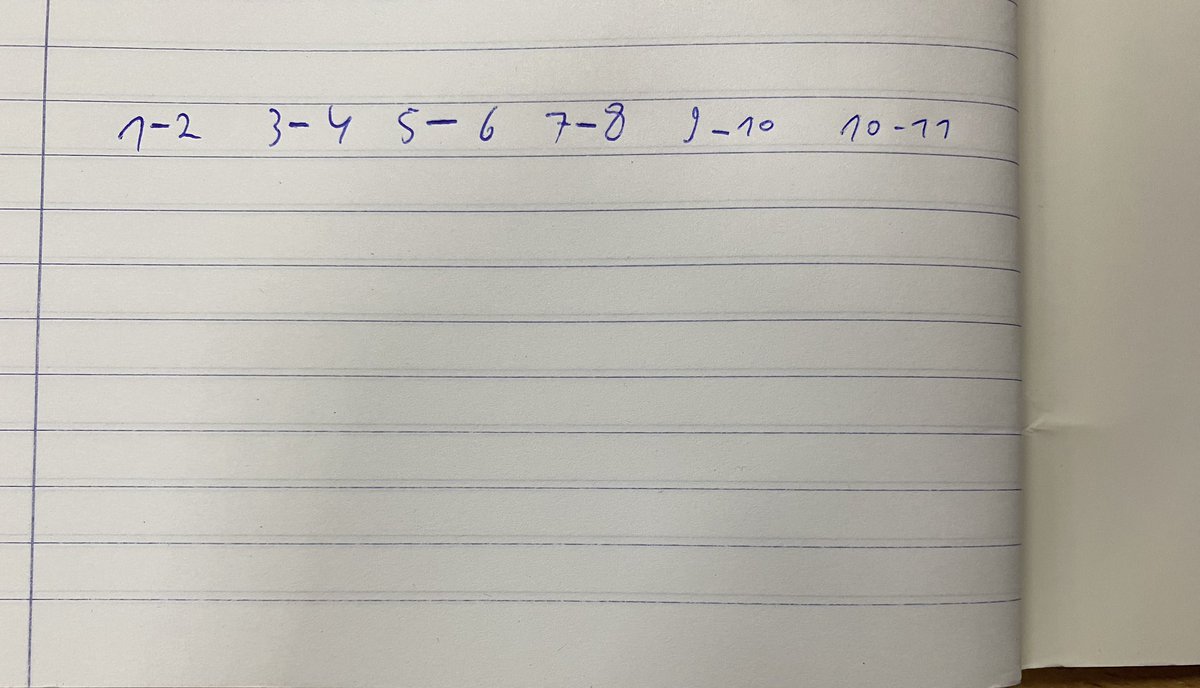 1-2 3-4 5-6 7-8 9-10 10-11